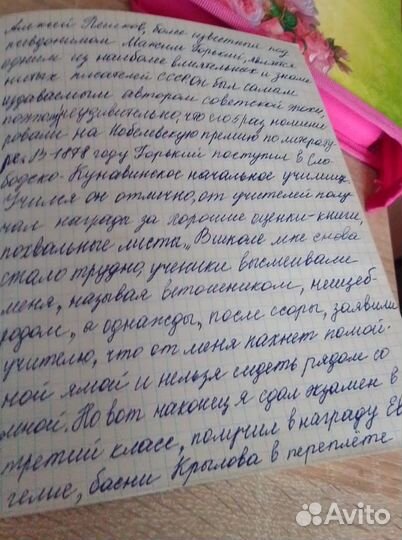 Алексей Пешков, более известный под
псевдонимом Максим Горький, являлся
одним из наиболее влиятельных и знаме
нитых писателей СССР. Он был самым
издаваемым автором советской эпохи,
поэтому неудивительно, что его 5 раз номини
ровали на Нобелевскую премию по литерату
ре. В 1878 году Горький поступил в Сло
бодско-Кунавинское начальное училище.
Учился он отлично, от учителей полу
чал награды за хорошие оценки - книги,
похвальные листы. "В школе мне снова
стало трудно, ученики высмеивали
меня, называя ветошником, нищеб
родом, а однажды, после ссоры, заявили
учителю, что от меня пахнет помой-
ной ямой и нельзя сидеть рядом со
мной. Но вот наконец я сдал экзамен в
третий класс, получил в награду Ев
гелие, басни Крылова в переплёте
Avito